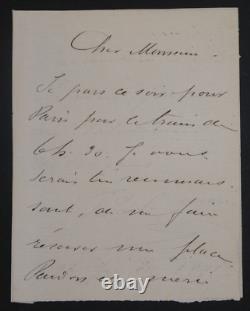 Cher Monsieur.
Je pars ce soir pour
Paris par le train de
6h. 30. Je vous
serais bien reconnais-
sant, de me faire
réserver une place
Pardon et merci
© ebay